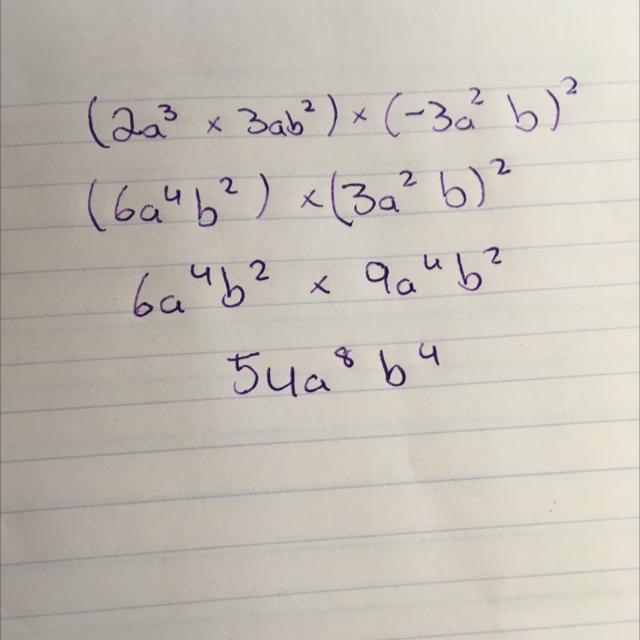 (2a³ × 3ab²) × (-3a² b)²
(6a⁴b²) × (3a² b)²
6a⁴b² × 9a⁴b²
54a⁸ b⁴